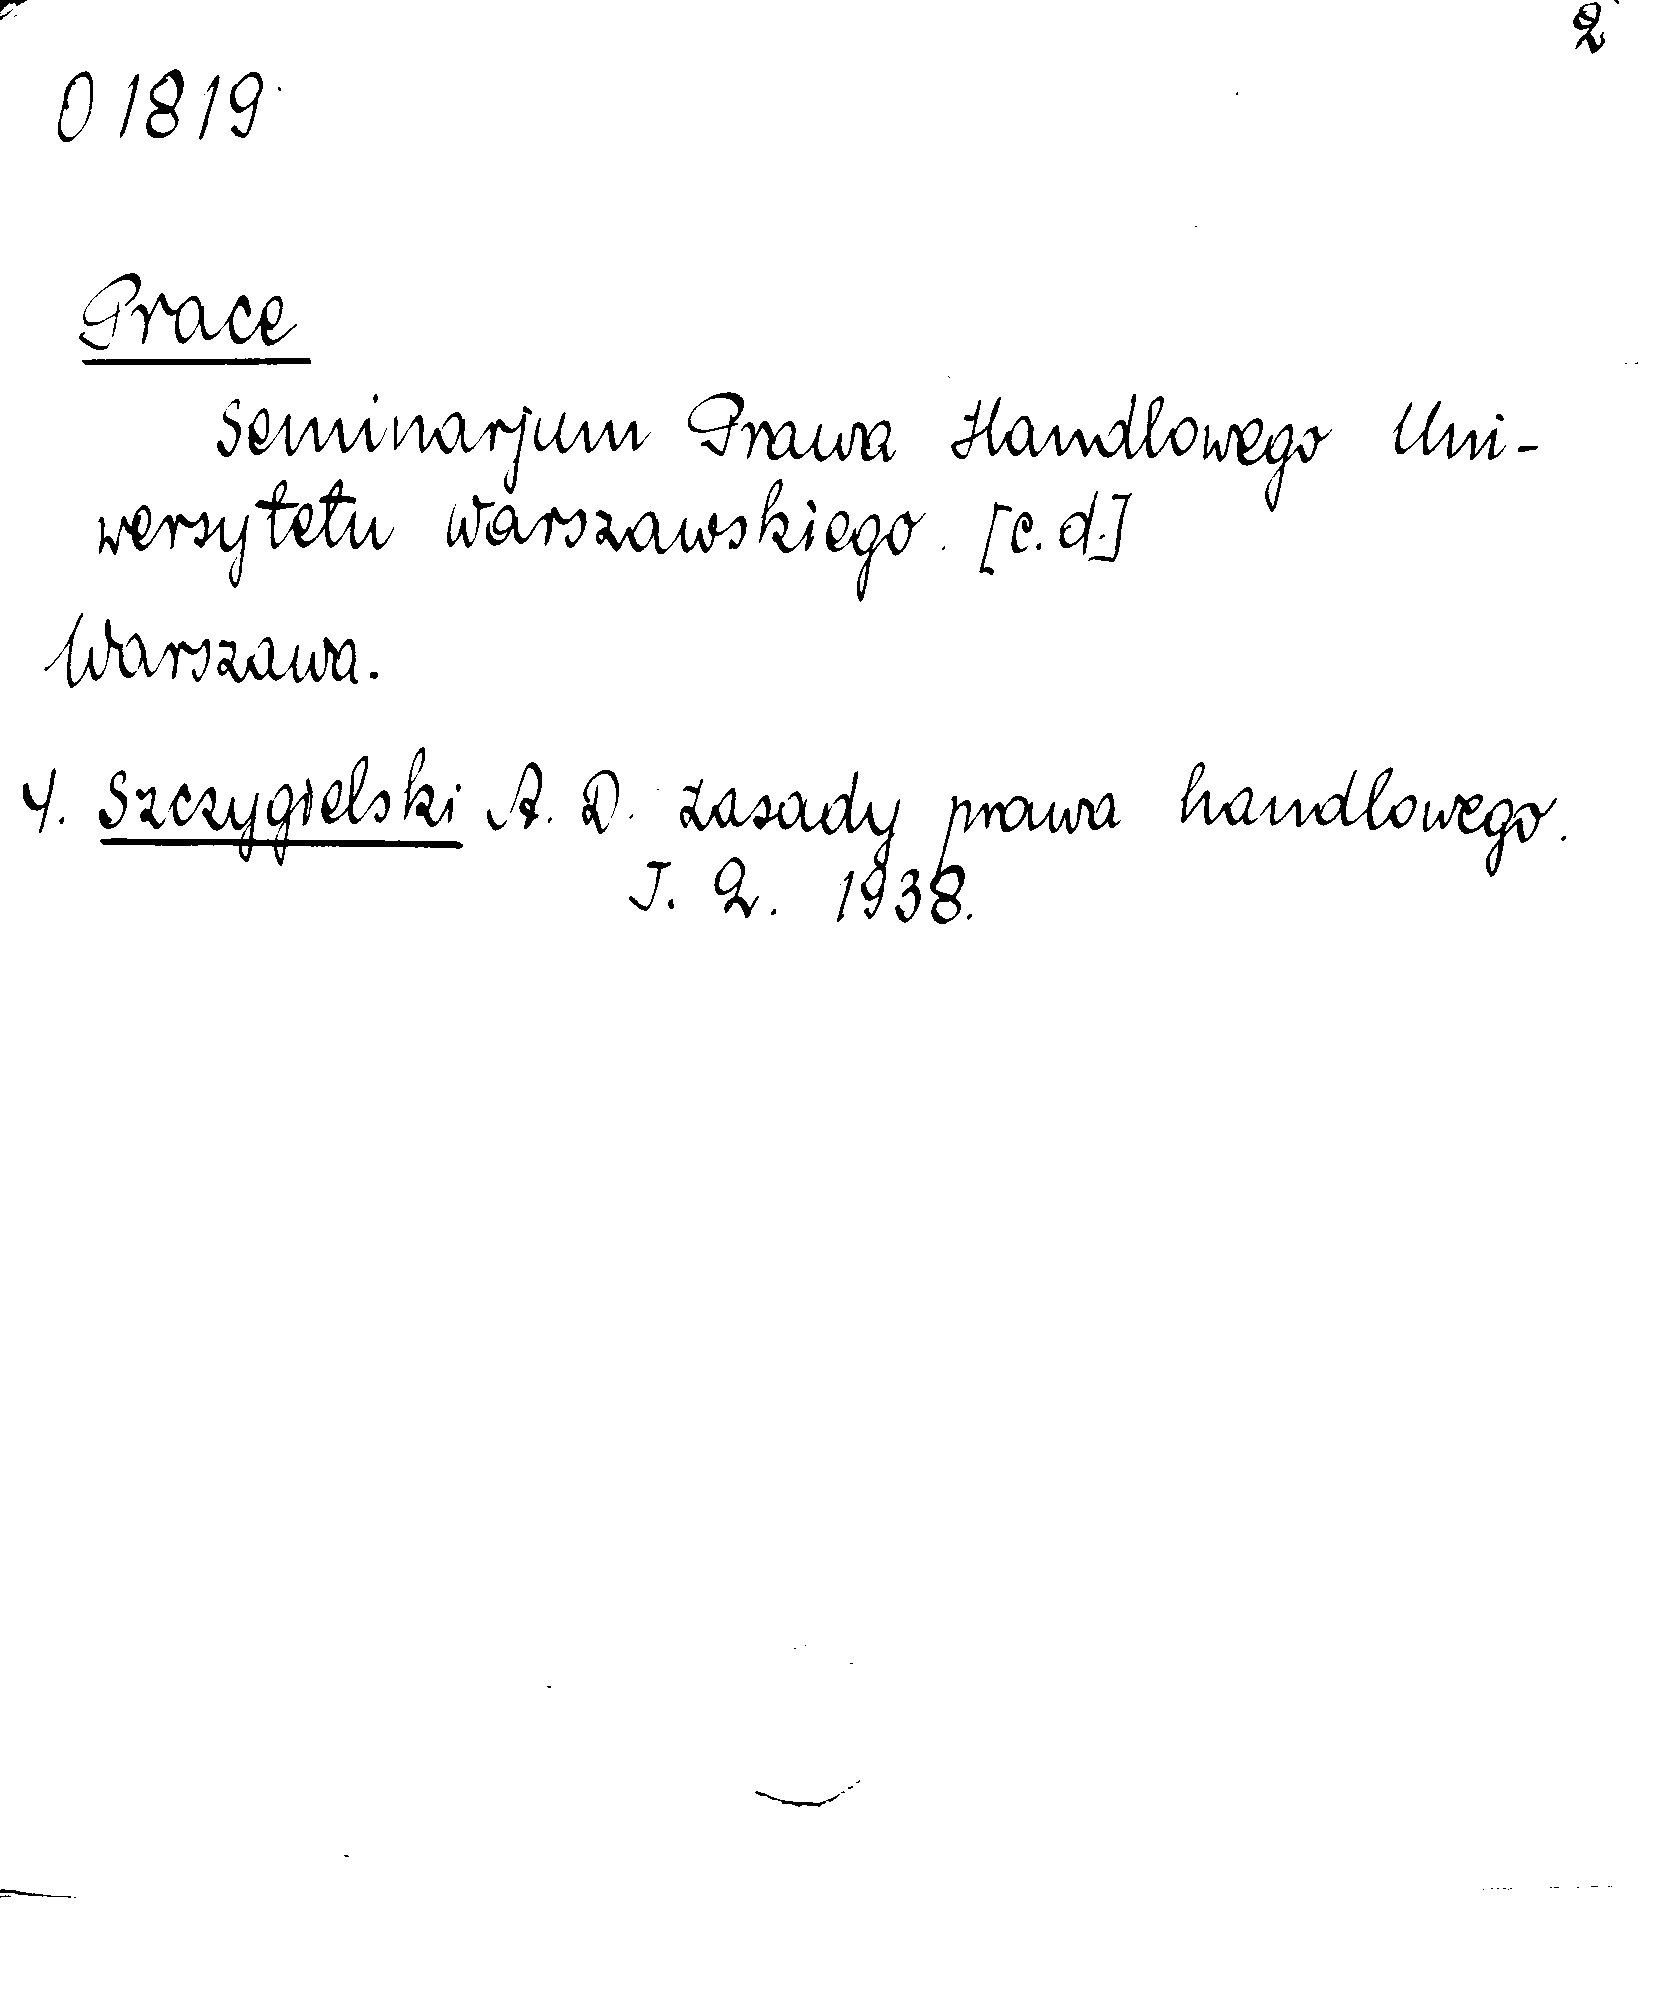 2
O 1819
Prace
Seminarjum Prawa Handlowego Uni-
wersytetu Warszawskiego. [c.d.]
Warszawa.
4. Szczygielski A. D. Zasady prawa handlowego.
T. 2. 1938.